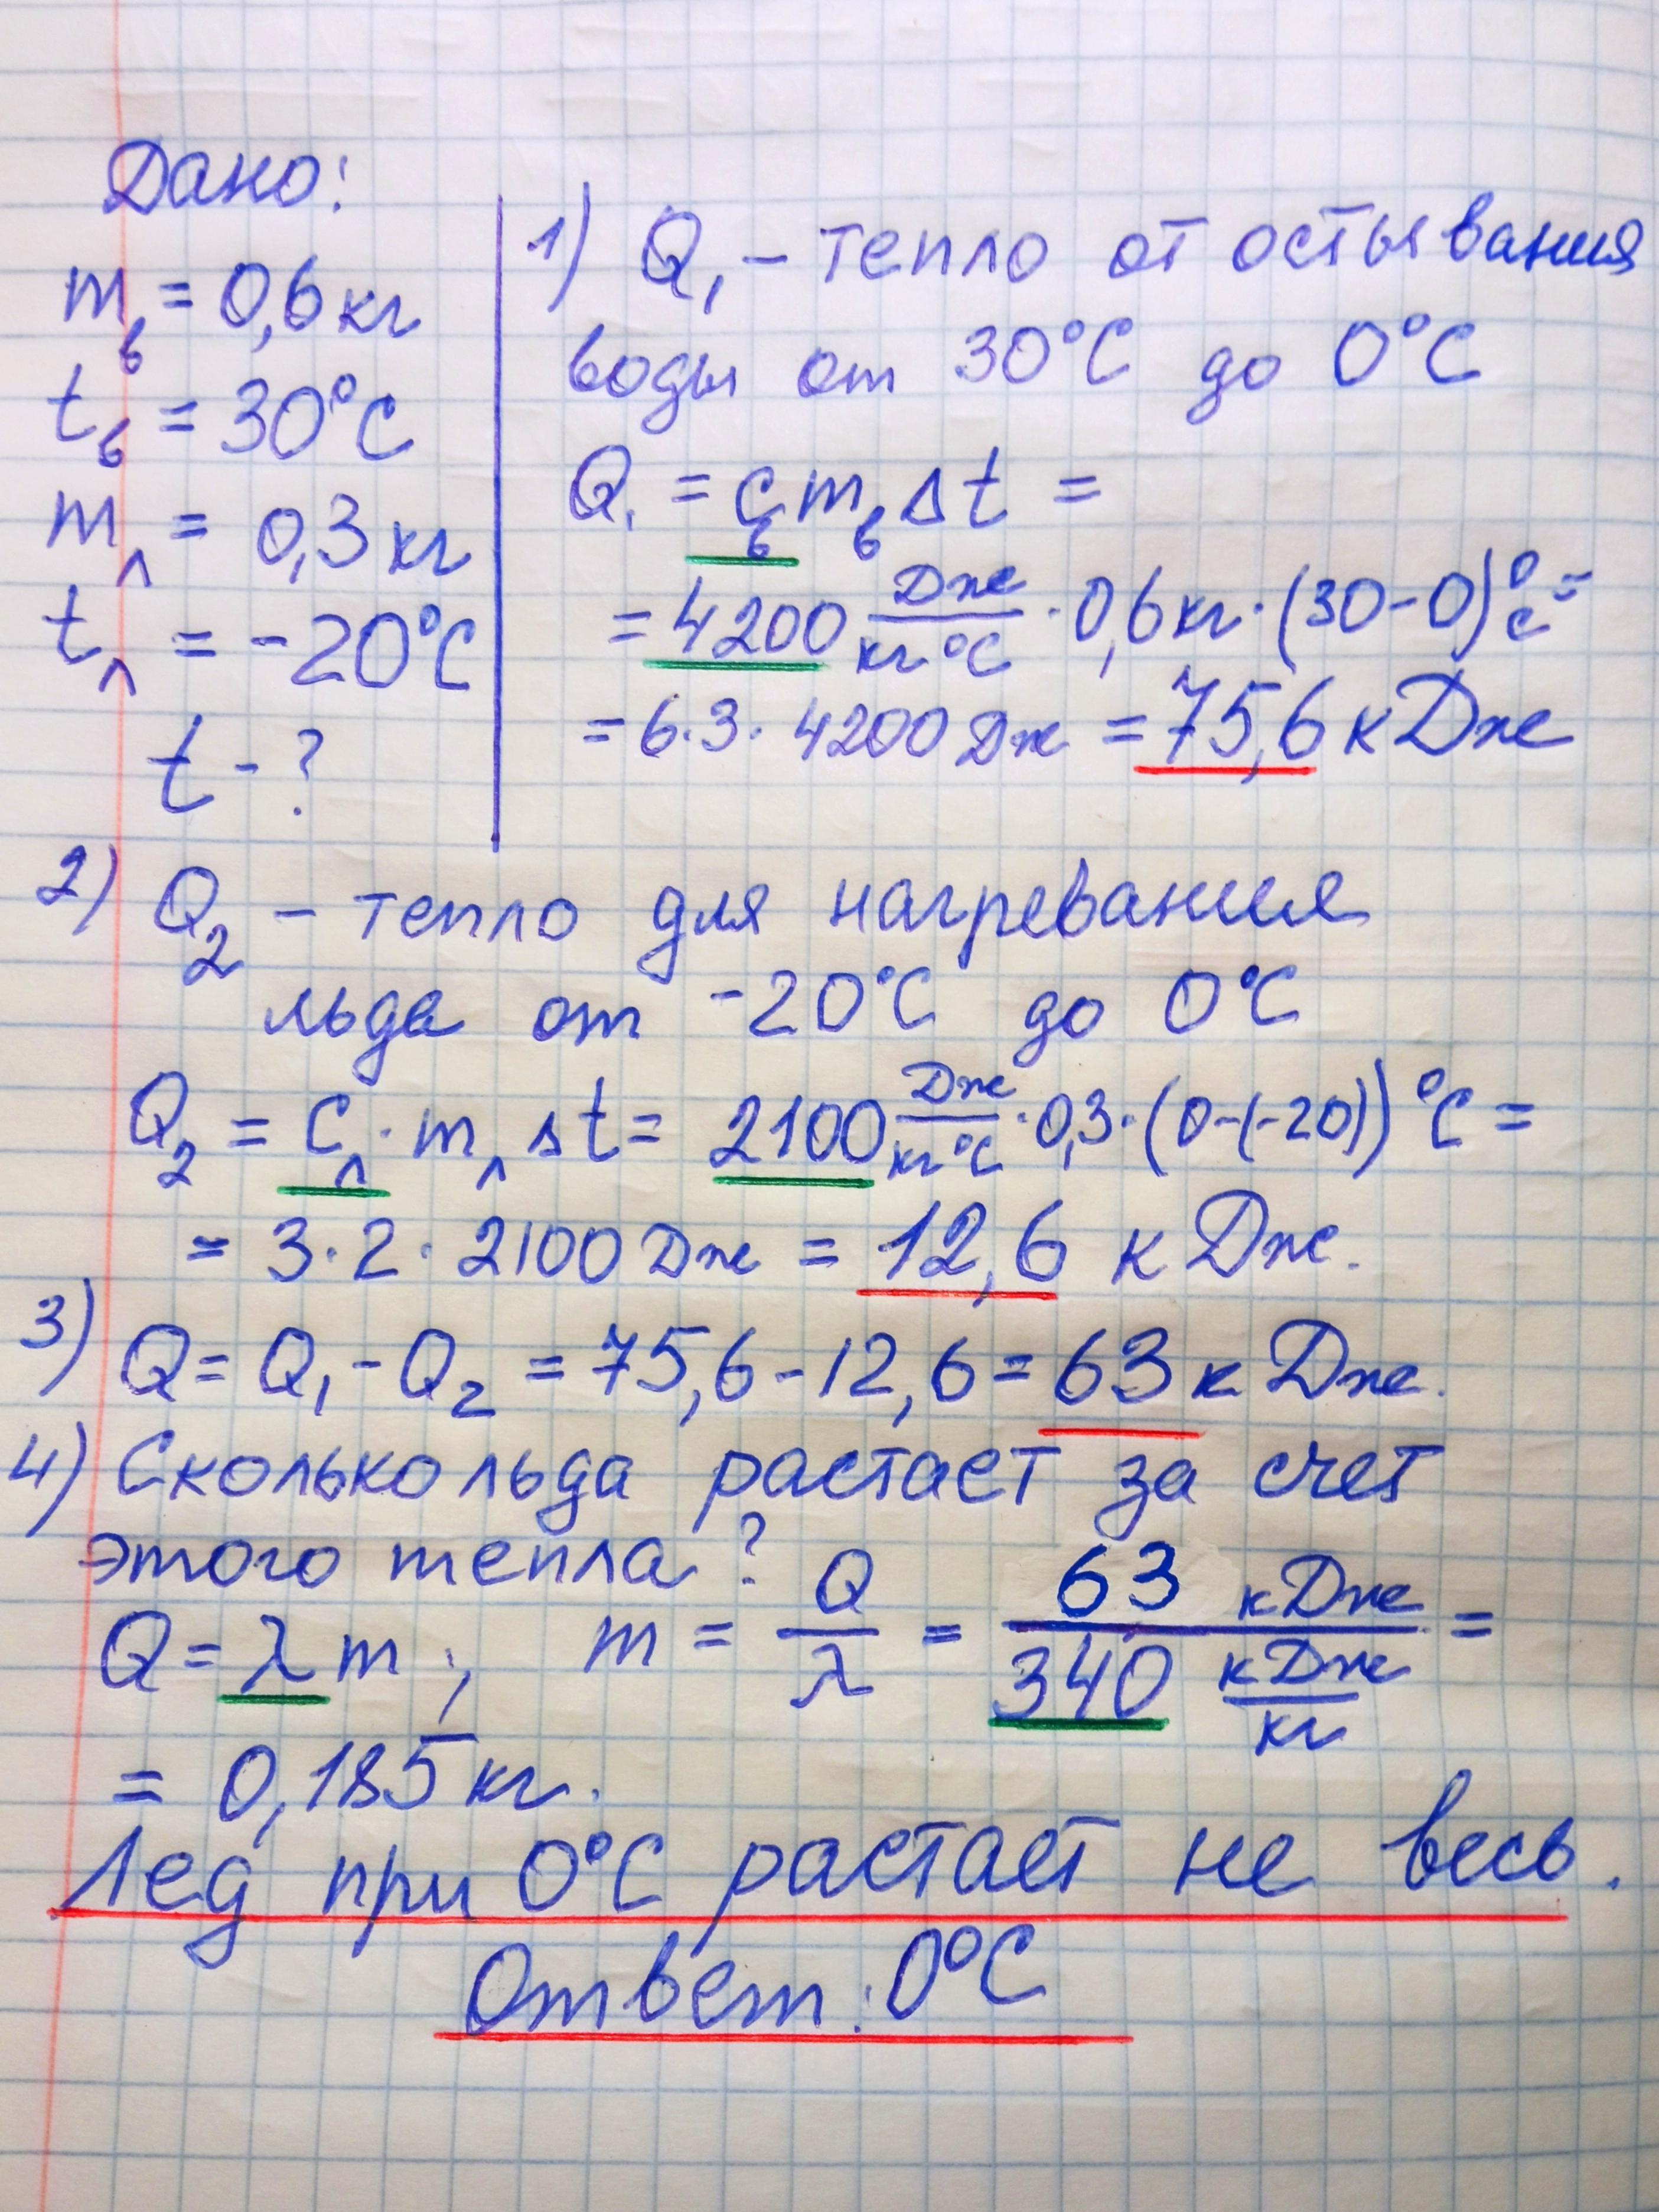 Дано:
m_в = 0,6 кг
t_в = 30°C
m_л = 0,3 кг
t_л = -20°C
t - ?
1) Q₁ – тепло от остывания
воды от 30°C до 0°C
Q₁ = c_в m_в Δt =
= 4200 Дж/кг°C · 0,6 кг · (30-0)°C =
= 6·3·4200 Дж = 75,6 кДж
2) Q₂ – тепло для нагревания
льда от -20°C до 0°C
Q₂ = c_л · m_л Δt = 2100 Дж/кг°C · 0,3 · (0-(-20))°C =
= 3·2·2100 Дж = 12,6 кДж.
3) Q = Q₁ - Q₂ = 75,6 - 12,6 = 63 кДж.
4) Сколько льда растает за счет
этого тепла?
Q = λm; m = Q/λ = 63 кДж / 340 кДж/кг =
= 0,185 кг.
Лед при 0°C растает не весь.
Ответ: 0°C